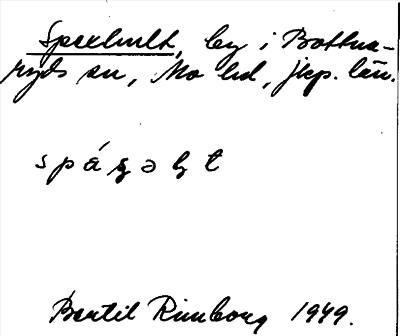 Spexhult, by i Bottna-
ryds sn, Mo hd, Jkp. län.
Bertil Rimborg 1949.